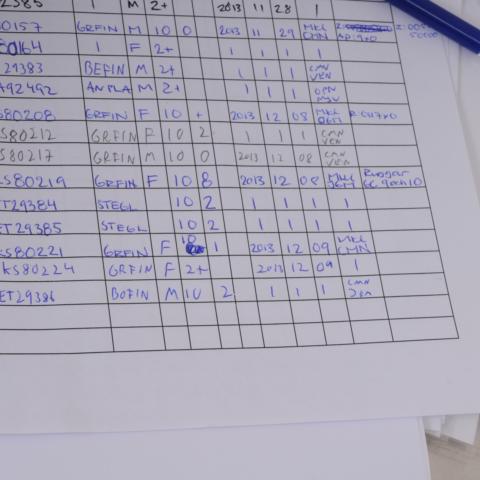 2385 1 M 2+ 2013 11 28 1
80157 GRFIN M 10 0 2013 11 29 MKL CMN
80164 1 F 2+ 1 1 1 1
29383 BEFIN M 2+ 1 1 1 CMN VEN
A92492 M 2+ 1 1 1
S80208 GRFIN F 10 + 2013 12 08 MKL
S80212 GRFIN F 10 2 1 1 1 CMN VEN
S80217 GRFIN M 10 0 2013 12 08 CMN VEN
KS80219 GRFIN F 10 8 2013 12 08 MKL
ET29384 STEGL 10 2 1 1 1 1
ET29385 STEGL 10 2 1 1 1 1
KS80221 GRFIN F 10 1 2013 12 09 MKL CMN
KS80224 GRFIN F 2+ 2013 12 09 1
ET29386 BOFIN M 10 2 1 1 1 CMN